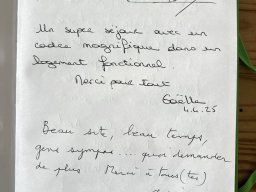 Un super séjour avec un
cadre magnifique dans un
logement fonctionnel
Merci pour tout
Gaëlle
4.4.25
Beau site, beau temps,
gens sympas... quoi demander
de plus Merci à tous(tes)